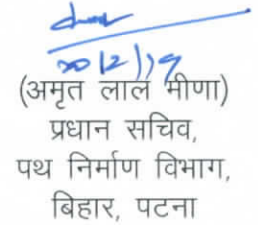 20/2/19
(अमृत लाल मीणा)
प्रधान सचिव,
पथ निर्माण विभाग,
बिहार, पटना